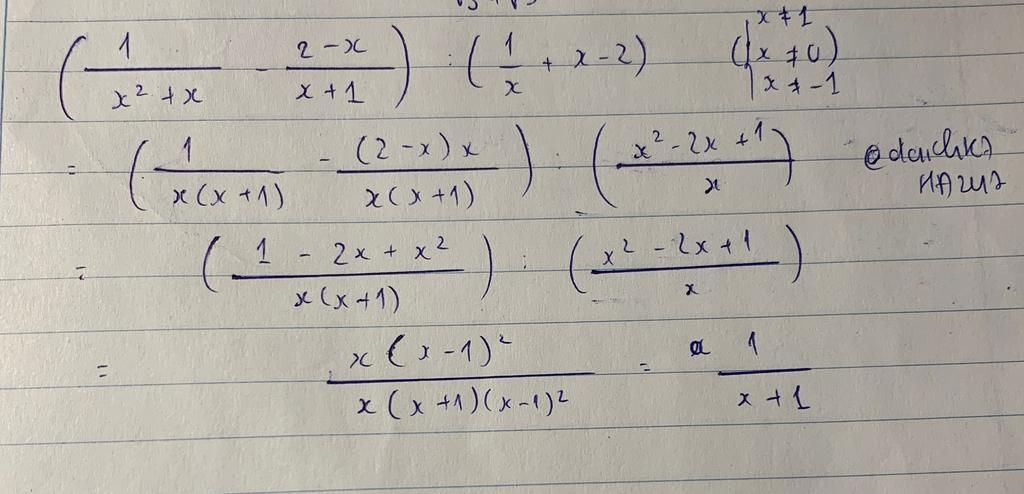 ( 1/(x² + x) - (2 - x)/(x + 1) ) : ( 1/x + x - 2 ) ( x ≠ 1 x ≠ 0 x ≠ -1 )
= ( 1/(x(x + 1)) - ((2 - x)x)/(x(x + 1)) ) : ( (x² - 2x + 1)/x )
= ( (1 - 2x + x²)/(x(x + 1)) ) : ( (x² - 2x + 1)/x )
= (x(x - 1)²)/(x(x + 1)(x - 1)²) = 1/(x + 1)